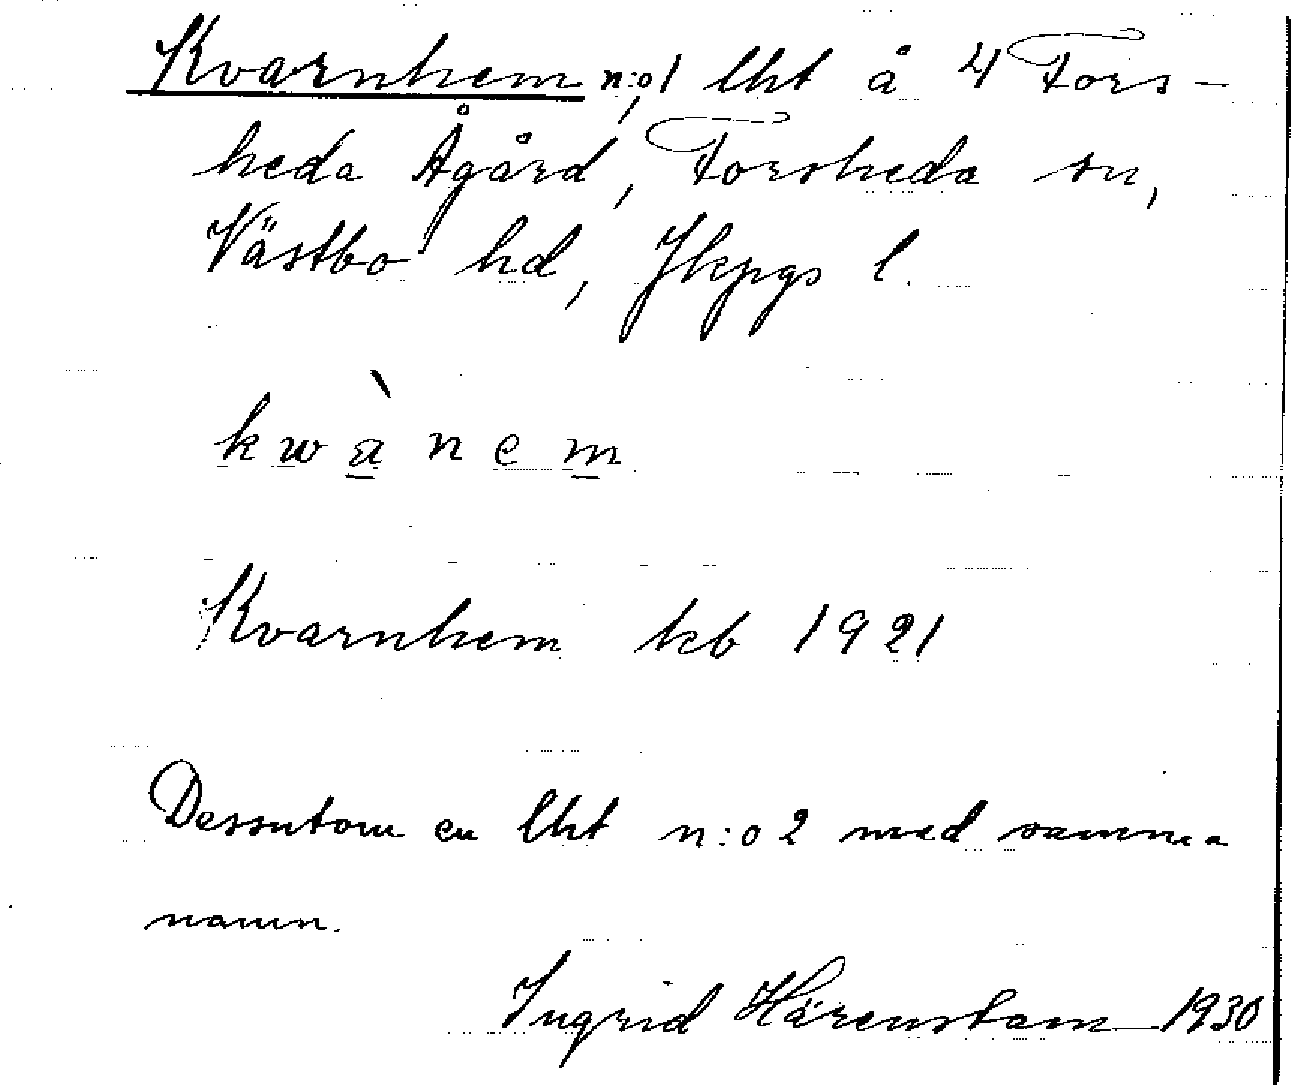 Kvarnhem n:o 1, lht å 4 Fors-
heda Ågård, Forsheda sn,
Västbo hd, Jkpgs l.
kwànem
Kvarnhem kb 1921
Dessutom en lht n:o 2 med samma
namn.
Ingrid Härenstam 1930